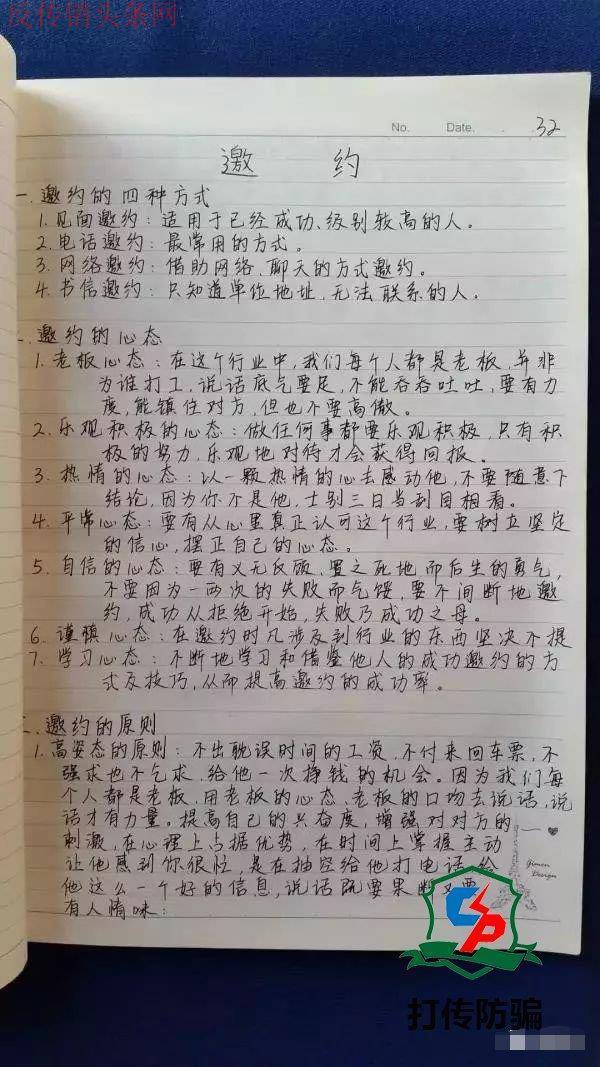 反传销头条网
No. Date. 32
邀约
一.邀约的四种方式
1.见面邀约:适用于已经成功、级别较高的人。
2.电话邀约:最常用的方式。
3.网络邀约:借助网络,聊天的方式邀约。
4.书信邀约:只知道单位地址,无法联系的人。
二.邀约的心态
1.老板心态:在这个行业中,我们每个人都是老板,并非
为谁打工,说话底气要足,不能吞吞吐吐,要有力
度,能镇住对方,但也不要高傲。
2.乐观积极的心态:做任何事都要乐观积极,只有积
极的努力,乐观地对待才会获得回报。
3.热情的心态:以一颗热情的心去感动他,不要随意下
结论,因为你不是他,士别三日当刮目相看。
4.平常心态:要有从心里真正认可这个行业,要树立坚定
的信心,摆正自己的心态。
5.自信的心态:要有义无反顾,置之死地而后生的勇气,
不要因为一两次的失败而气馁,要不间断地邀
约,成功从拒绝开始,失败乃成功之母。
6.谨慎心态:在邀约时凡涉及到行业的东西坚决不提
7.学习心态:不断地学习和借鉴他人的成功邀约的方
式及技巧,从而提高邀约的成功率。
三.邀约的原则
1.高姿态的原则:不出耽误时间的工资,不付来回车票,不
强求也不乞求,给他一次挣钱的机会。因为我们每
个人都是老板,用老板的心态、老板的口吻去说话,说
话才有力量。提高自己的兴奋度,增强对对方的
刺激,在心理上占据优势,在时间上掌握主动
让他感到你很忙,是在抽空给他打电话,给
他这么一个好的信息,说话既要果断又要
有人情味:
Gimen
Design
CP
打传防骗